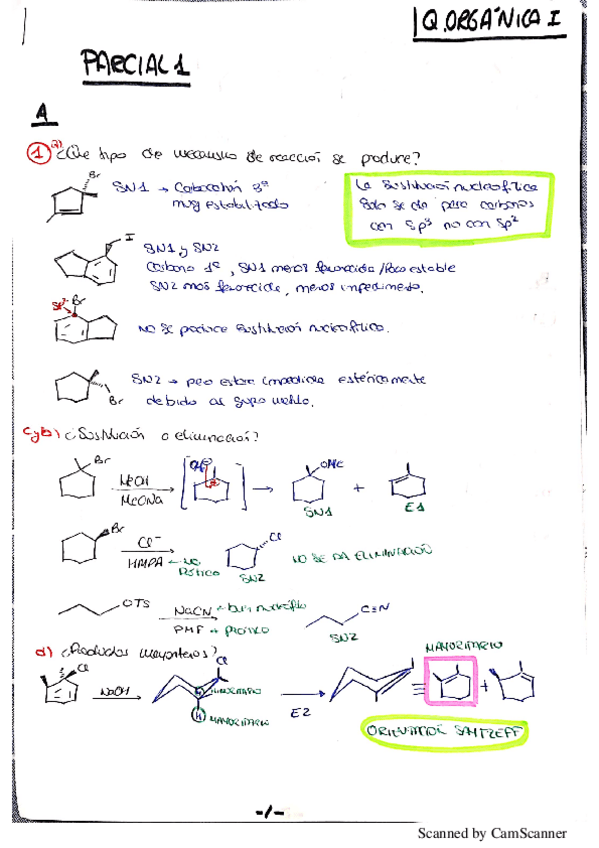 Q.ORGÁNICA I
PARCIAL 1
A
1 a) ¿Que tipo de mecanismo de reacción se produce?
Br
SN1 → Carbocatión 3º
muy estabilizado
La sustitución nucleofílica
solo se da para carbonos
con sp³ no con sp²
I
SN1 y SN2
Carbono 1º, SN1 menos favorecida / Poco estable
SN2 más favorecida, menos impedimento.
Sp²
Br
No se produce sustitución nucleofílica.
SN2 → pero estará impedida estéricamente
debido al grupo metilo.
Br
c y b) ¿Sustitución o eliminación?
Br
MeOH
MeONa
OMe
+
SN1
E1
Br
Cl⁻
HMPA ← No
Prótico
Cl
SN2
NO SE DA ELIMINACIÓN
OTS
NaCN ← buen nucleófilo
DMF → prótico
C≡N
SN2
d) ¿Productos mayoritarios?
MAYORITARIO
Cl
NaOH
Cl
H
MINORITARIO
H
MAYORITARIO
E2
≡
+
ORIENTACIÓN SAYTZEFF
-1-
Scanned by CamScanner